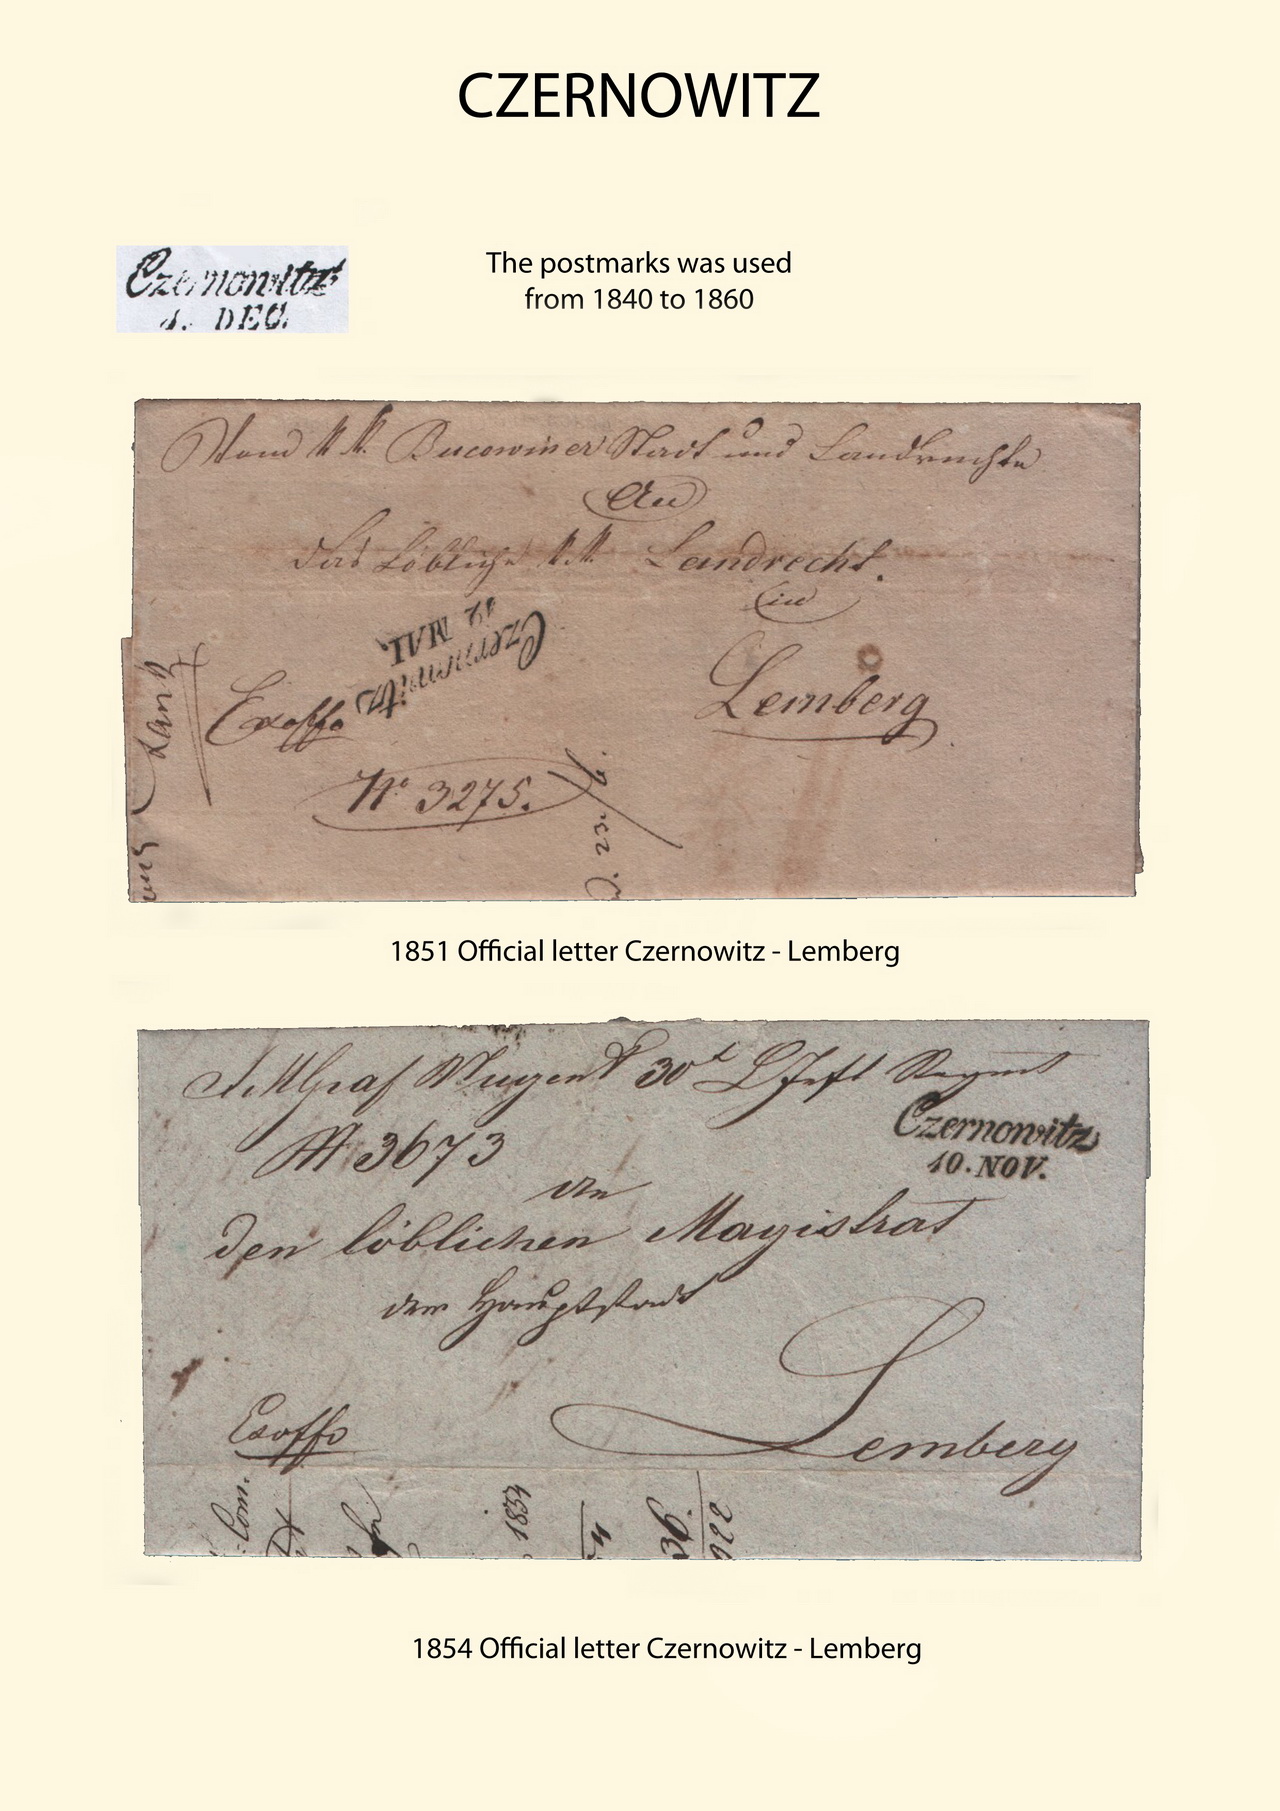 CZERNOWITZ
Czernowitz
DEC.
The postmarks was used
from 1840 to 1860
Vom k. k. Bucowiner Stadt und Landrechte
An
das löbliche k. k. Landrecht.
in
Czernowitz
12 MAI.
Lemberg
Exoffo
No 3275.
1851 Official letter Czernowitz - Lemberg
Graf Nugent 30t Regmt
Czernowitz
10. NOV.
N 3673
An
den löblichen Magistrat
der Hauptstadt
Lemberg
Exoffo
1854
1854 Official letter Czernowitz - Lemberg